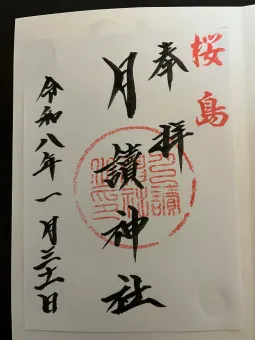 桜島
奉拝
月讀神社
令和八年一月三十一日